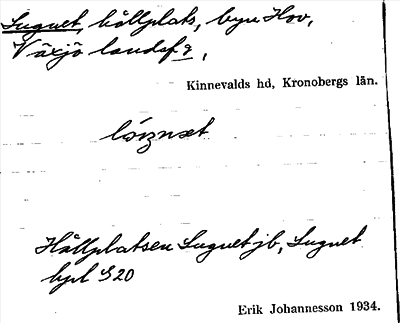 Lugnet, hållplats, byn Hov,
Växjö landsf.g,
Kinnevalds hd, Kronobergs län.
Hållplatsen Lugnet jb, Lugnet
hpl S20
Erik Johannesson 1934.